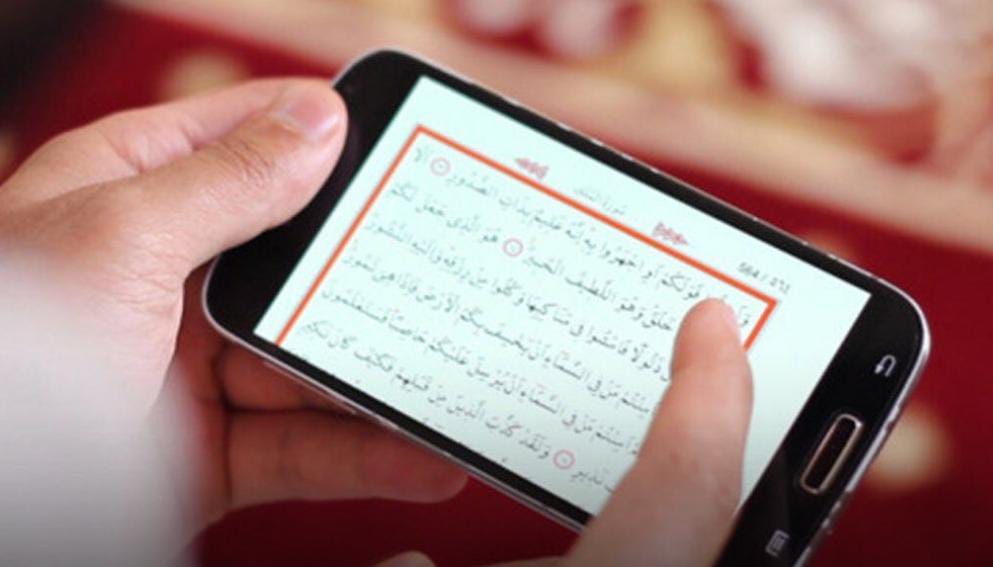 564 / ٥٦٤
سورة الملك
قَوْلَكُمْ أَوِ اجْهَرُوا بِهِ إِنَّهُ عَلِيمٌ بِذَاتِ الصُّدُورِ أَلَا
خَلَقَ وَهُوَ اللَّطِيفُ الْخَبِيرُ هُوَ الَّذِي جَعَلَ لَكُمُ
ذَلُولًا فَامْشُوا فِي مَنَاكِبِهَا وَكُلُوا مِن رِّزْقِهِ وَإِلَيْهِ النُّشُورُ
مَّن فِي السَّمَاءِ أَن يَخْسِفَ بِكُمُ الْأَرْضَ فَإِذَا هِيَ تَمُورُ
أَمِنتُم مَّن فِي السَّمَاءِ أَن يُرْسِلَ عَلَيْكُمْ حَاصِبًا فَسَتَعْلَمُونَ
نَذِيرِ وَلَقَدْ كَذَّبَ الَّذِينَ مِن قَبْلِهِمْ فَكَيْفَ كَانَ نَكِيرِ